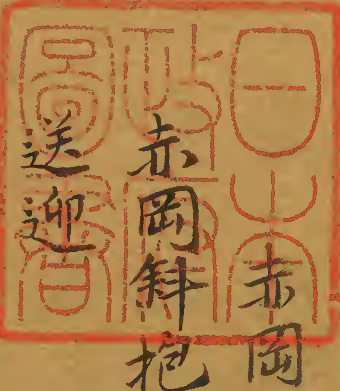 赤岡
赤岡斜抱
送迎